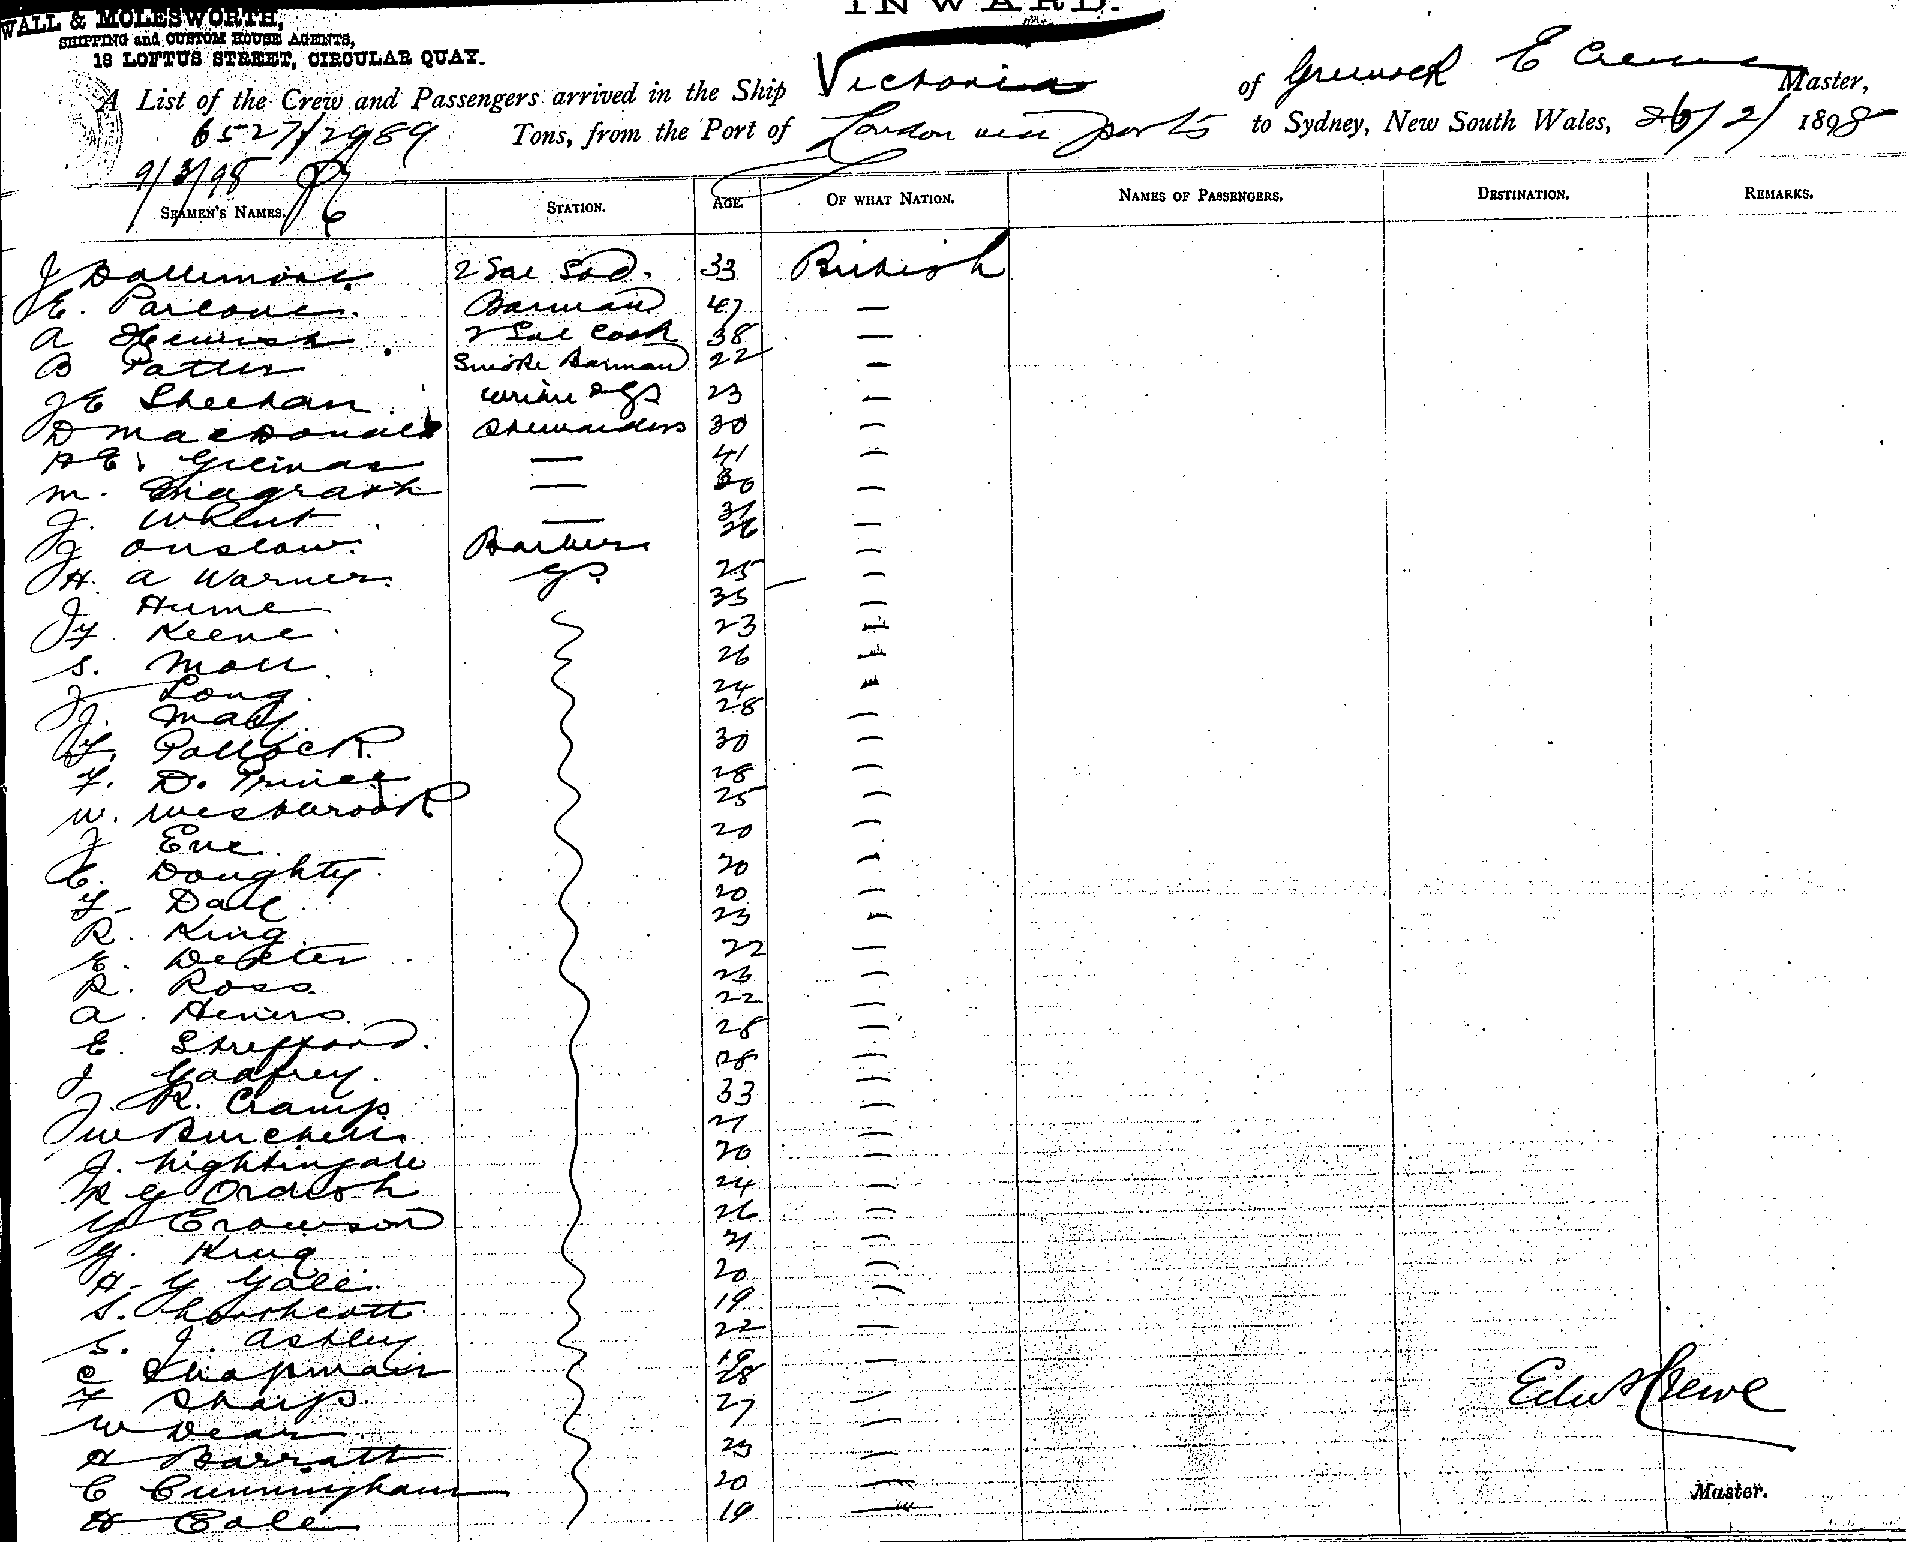 INWARD.
WALL & MOLESWORTH,
SHIPPING and CUSTOM HOUSE AGENTS,
18 LOFTUS STREET, CIRCULAR QUAY.
A List of the Crew and Passengers arrived in the Ship Victoria of Greenock E Crewe Master,
6527/2989 Tons, from the Port of London via ports to Sydney, New South Wales, 26/2/1898
9/3/98
SEAMEN'S NAMES. STATION. AGE OF WHAT NATION. NAMES OF PASSENGERS. DESTINATION. REMARKS.
J Dallimore 2 Sal Std. 33 British
E. Barman 47 —
A 2 Sal Cook 38 —
B Patten Smoke Barman 22 —
J E Sheehan 23 —
D MacDonald Stewardess 30 —
A E. — 41 —
M. Magrath — 30 —
J. Whent — 31 —
J. Onslow Barber 26 —
H. A Warner GS 25 —
J. Hume 35 —
F. Keene 23 —
S. Moll 26 —
J Long 24 —
J. May 28 —
F. Pollock 30 —
F. D. Prince 28 —
W. Westbrook 25 —
J Eve 20 —
E. Doughty 20 —
F. Dale 20 —
R. King 23 —
E. Dexter 22 —
R. Ross 26 —
A. 22 —
E. Shefford 28 —
J Godfrey 28 —
J. R. Cramp 33 —
J W Burchell 21 —
J. Nightingale 20 —
R G Ordish 24 —
G Crowson 26 —
G. King 21 —
A. G Gale 20 —
S. Northcott 19 —
S. J. Ashley 22 —
C Chapman 19 —
F Sharp 28 —
W Dean 27 —
H Barratt 23 —
C Cunningham 20 —
H Cole 19 —
Edw Crewe
Master.